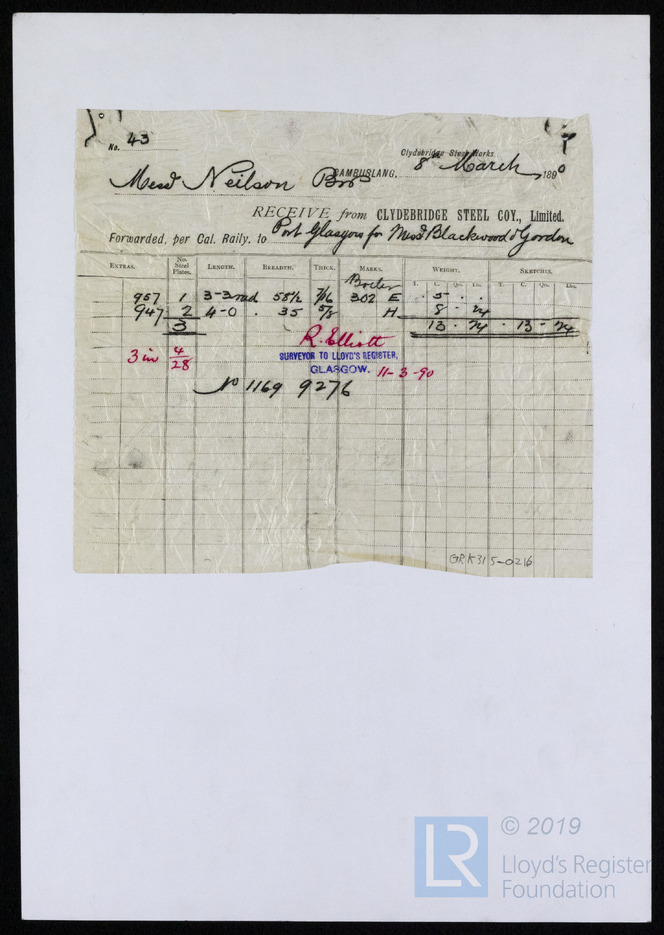 No. 43
Clydebridge Steel Works
CAMBUSLANG, 8th March 1890
Messrs Neilson Bros
RECEIVE from CLYDEBRIDGE STEEL COY., Limited.
Forwarded, per Cal. Raily. to Port Glasgow for Messrs Blackwood & Gordon
EXTRAS. No. Steel Plates. LENGTH. BREADTH. THICK. MARKS. WEIGHT. SKETCHES.
T. C. Qrs. Lbs. T. C. Qrs. Lbs.
Boiler
957 1 3-3 rad 58½ 7/16 302 E . 5 . .
947 2 4-0 . 35 5/8 H 8 - 24
3 13 - 24 - 13 - 24
R. Elliott
3 in 4/28
SURVEYOR TO LLOYD'S REGISTER,
GLASGOW. 11-3-90
No 1169 9276
GRK315-0216
LR
© 2019
Lloyd's Register
Foundation